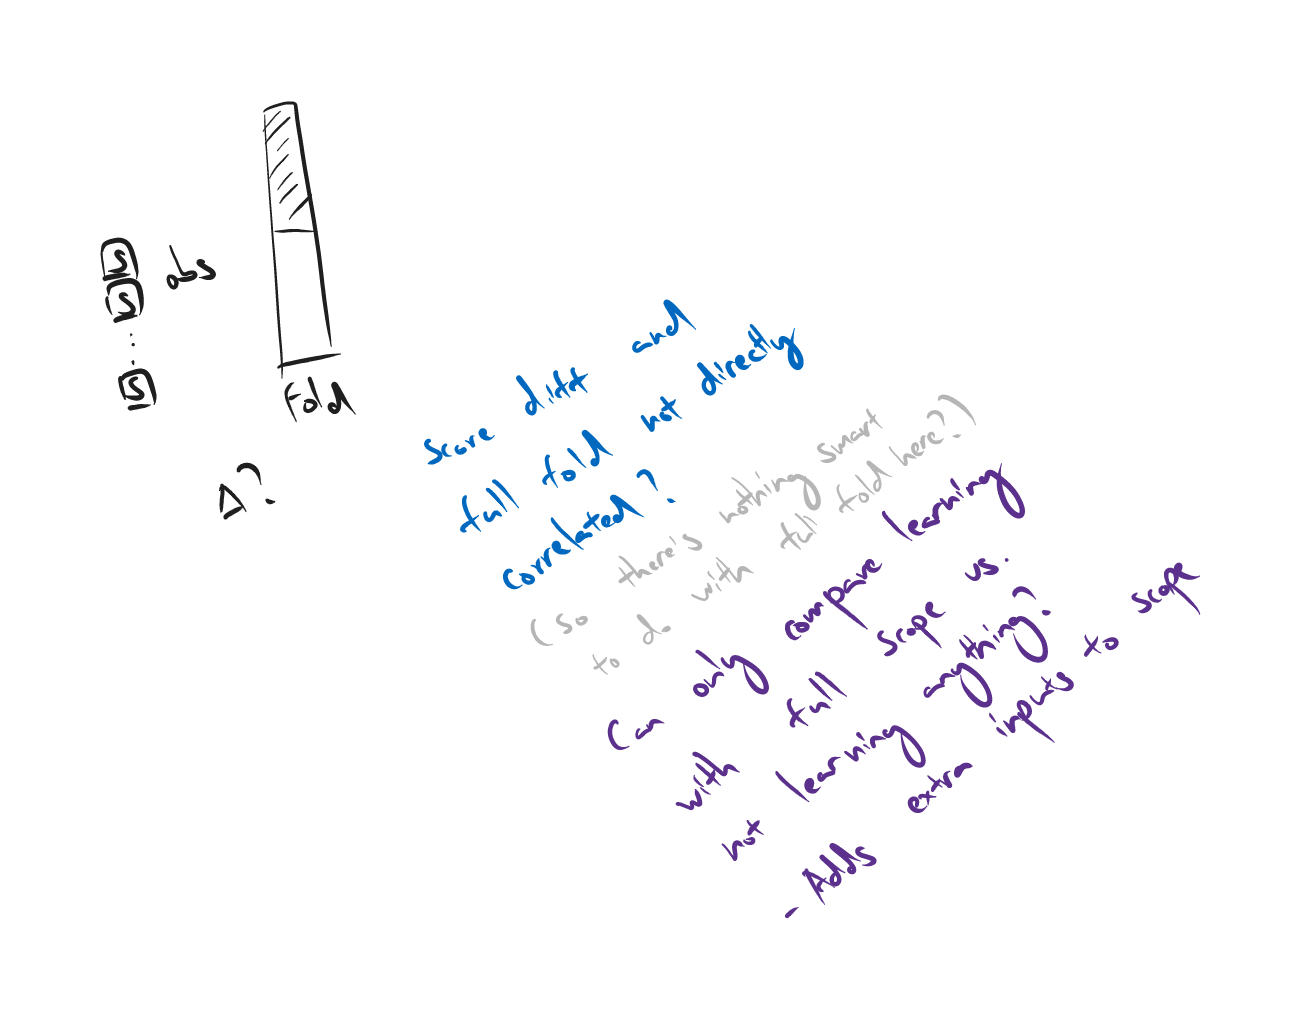 S
S
S
obs
Fold
Δ?
Score diff and
full fold not directly
correlated?
(so there's nothing smart
to do with full fold here?)
Can only compare learning
with full scope vs.
not learning anything?
- Adds extra inputs to scope